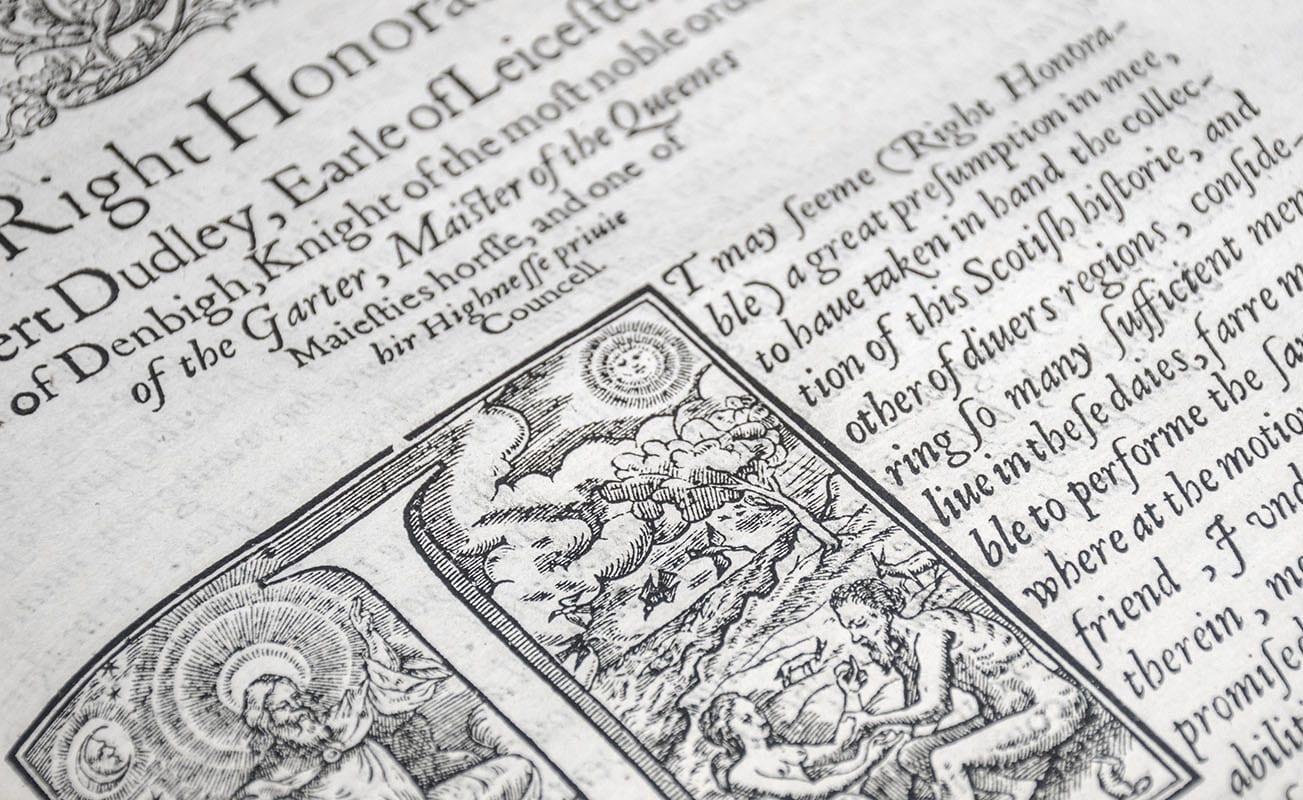 Right Honora
ert Dudley, Earle of Leiceſte
of Denbigh, Knight of the moſt noble ord
of the Garter, Maiſter of the Queenes
Maieſties horſſe, and one of
hir Highneſſe priuie
Councell.
T may ſeeme (Right Honora-
ble) a great preſumption in mee,
to haue taken in hand the collec-
tion of this Scotiſh hiſtorie, and
other of diuers regions, conſide-
ring ſo many ſufficient men
liue in theſe daies, farre m
ble to performe the ſa
where at the motio
friend, I vnd
therein, m
promiſed
abilit